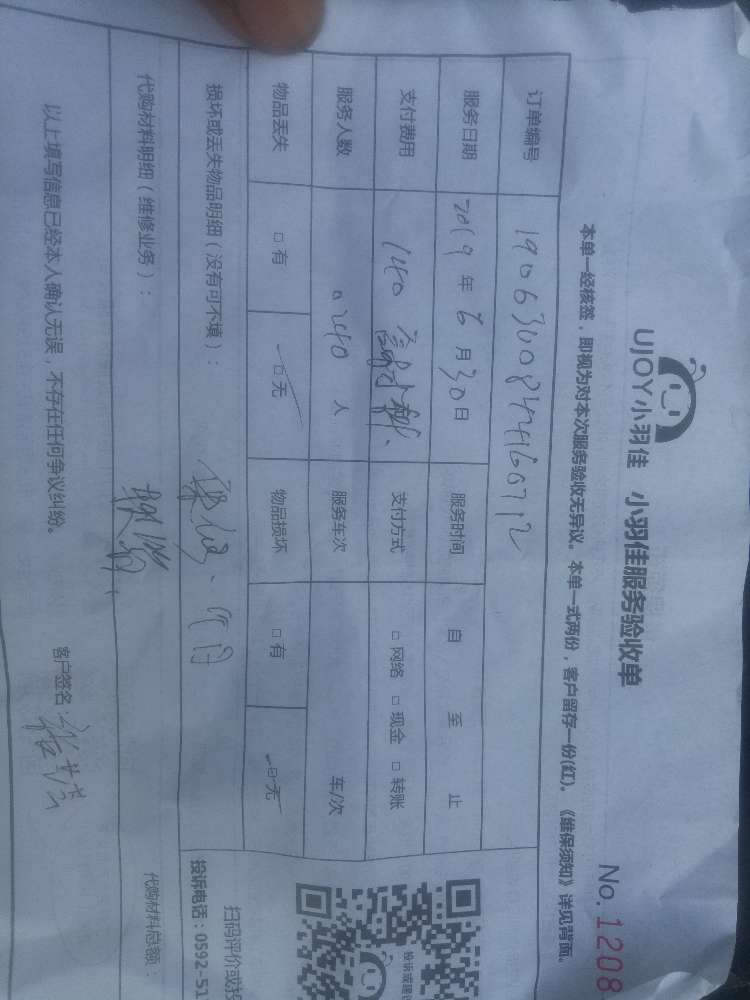 UJOY小羽佳 小羽佳服务验收单
No. 1208
本单一经核签，即视为对本次服务验收无异议。本单一式两份，客户留存一份(红)。《维保须知》详见背面。
订单编号
服务日期 2019 年 6 月 30 日 服务时间 自 至 止
支付费用 140 支付方式 □ 网络 □ 现金 □ 转账
服务人数 人 服务车次 车/次
物品丢失 □ 有 □ 无 物品损坏 □ 有 □ 无
损坏或丢失物品明细（没有可不填）：
扫码评价或投
投诉电话：0592-51
代购材料明细（维修业务）：
代购材料总额：
以上填写信息已经本人确认无误，不存在任何争议纠纷。
客户签名：